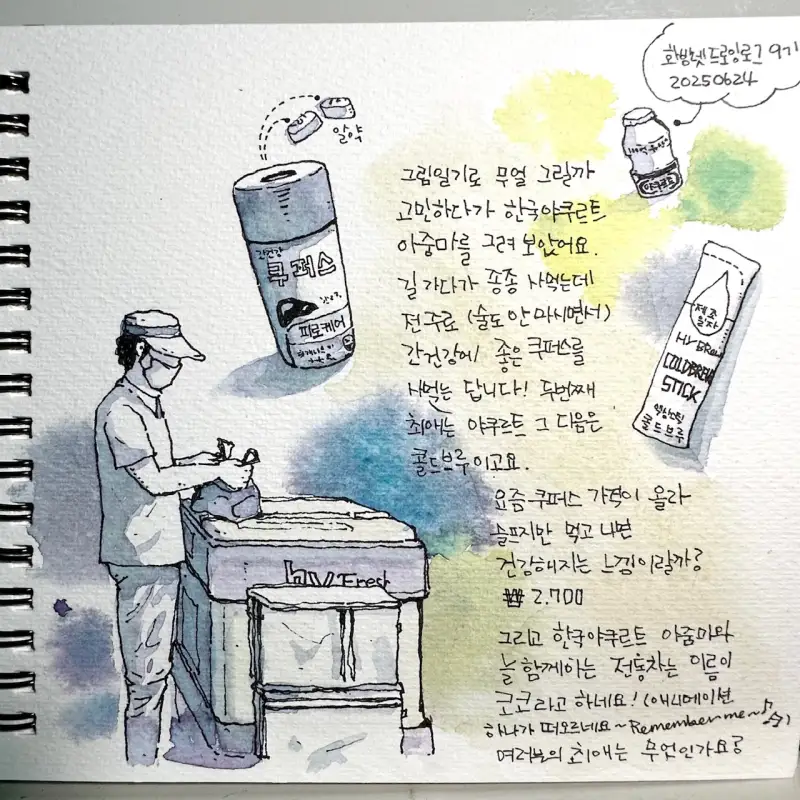 화방넷드로잉로그 9기
20250624
알약
간건강
쿠퍼스
피로케어
야쿠르트
제조
일자
COLDBREW
STICK
액상스틱
콜드브루
hy Fresh
그림일기로 무얼 그릴까
고민하다가 한국야쿠르트
아줌마를 그려 보았어요.
길 가다가 종종 사먹는데
전주로 (술도 안 마시면서)
간건강에 좋은 쿠퍼스를
사먹는 답니다! 두번째
최애는 야쿠르트 그 다음은
콜드브루이고요.
요즘 쿠퍼스 가격이 올라
슬프지만 먹고 나면
건강해지는 느낌이랄까?
₩ 2,700
그리고 한국야쿠르트 아줌마와
늘 함께하는 전동차는 이름이
코코라고 하네요! (애니메이션
하나가 떠오르네요~ Remember me~♪♫)
여러분의 최애는 무엇인가요?